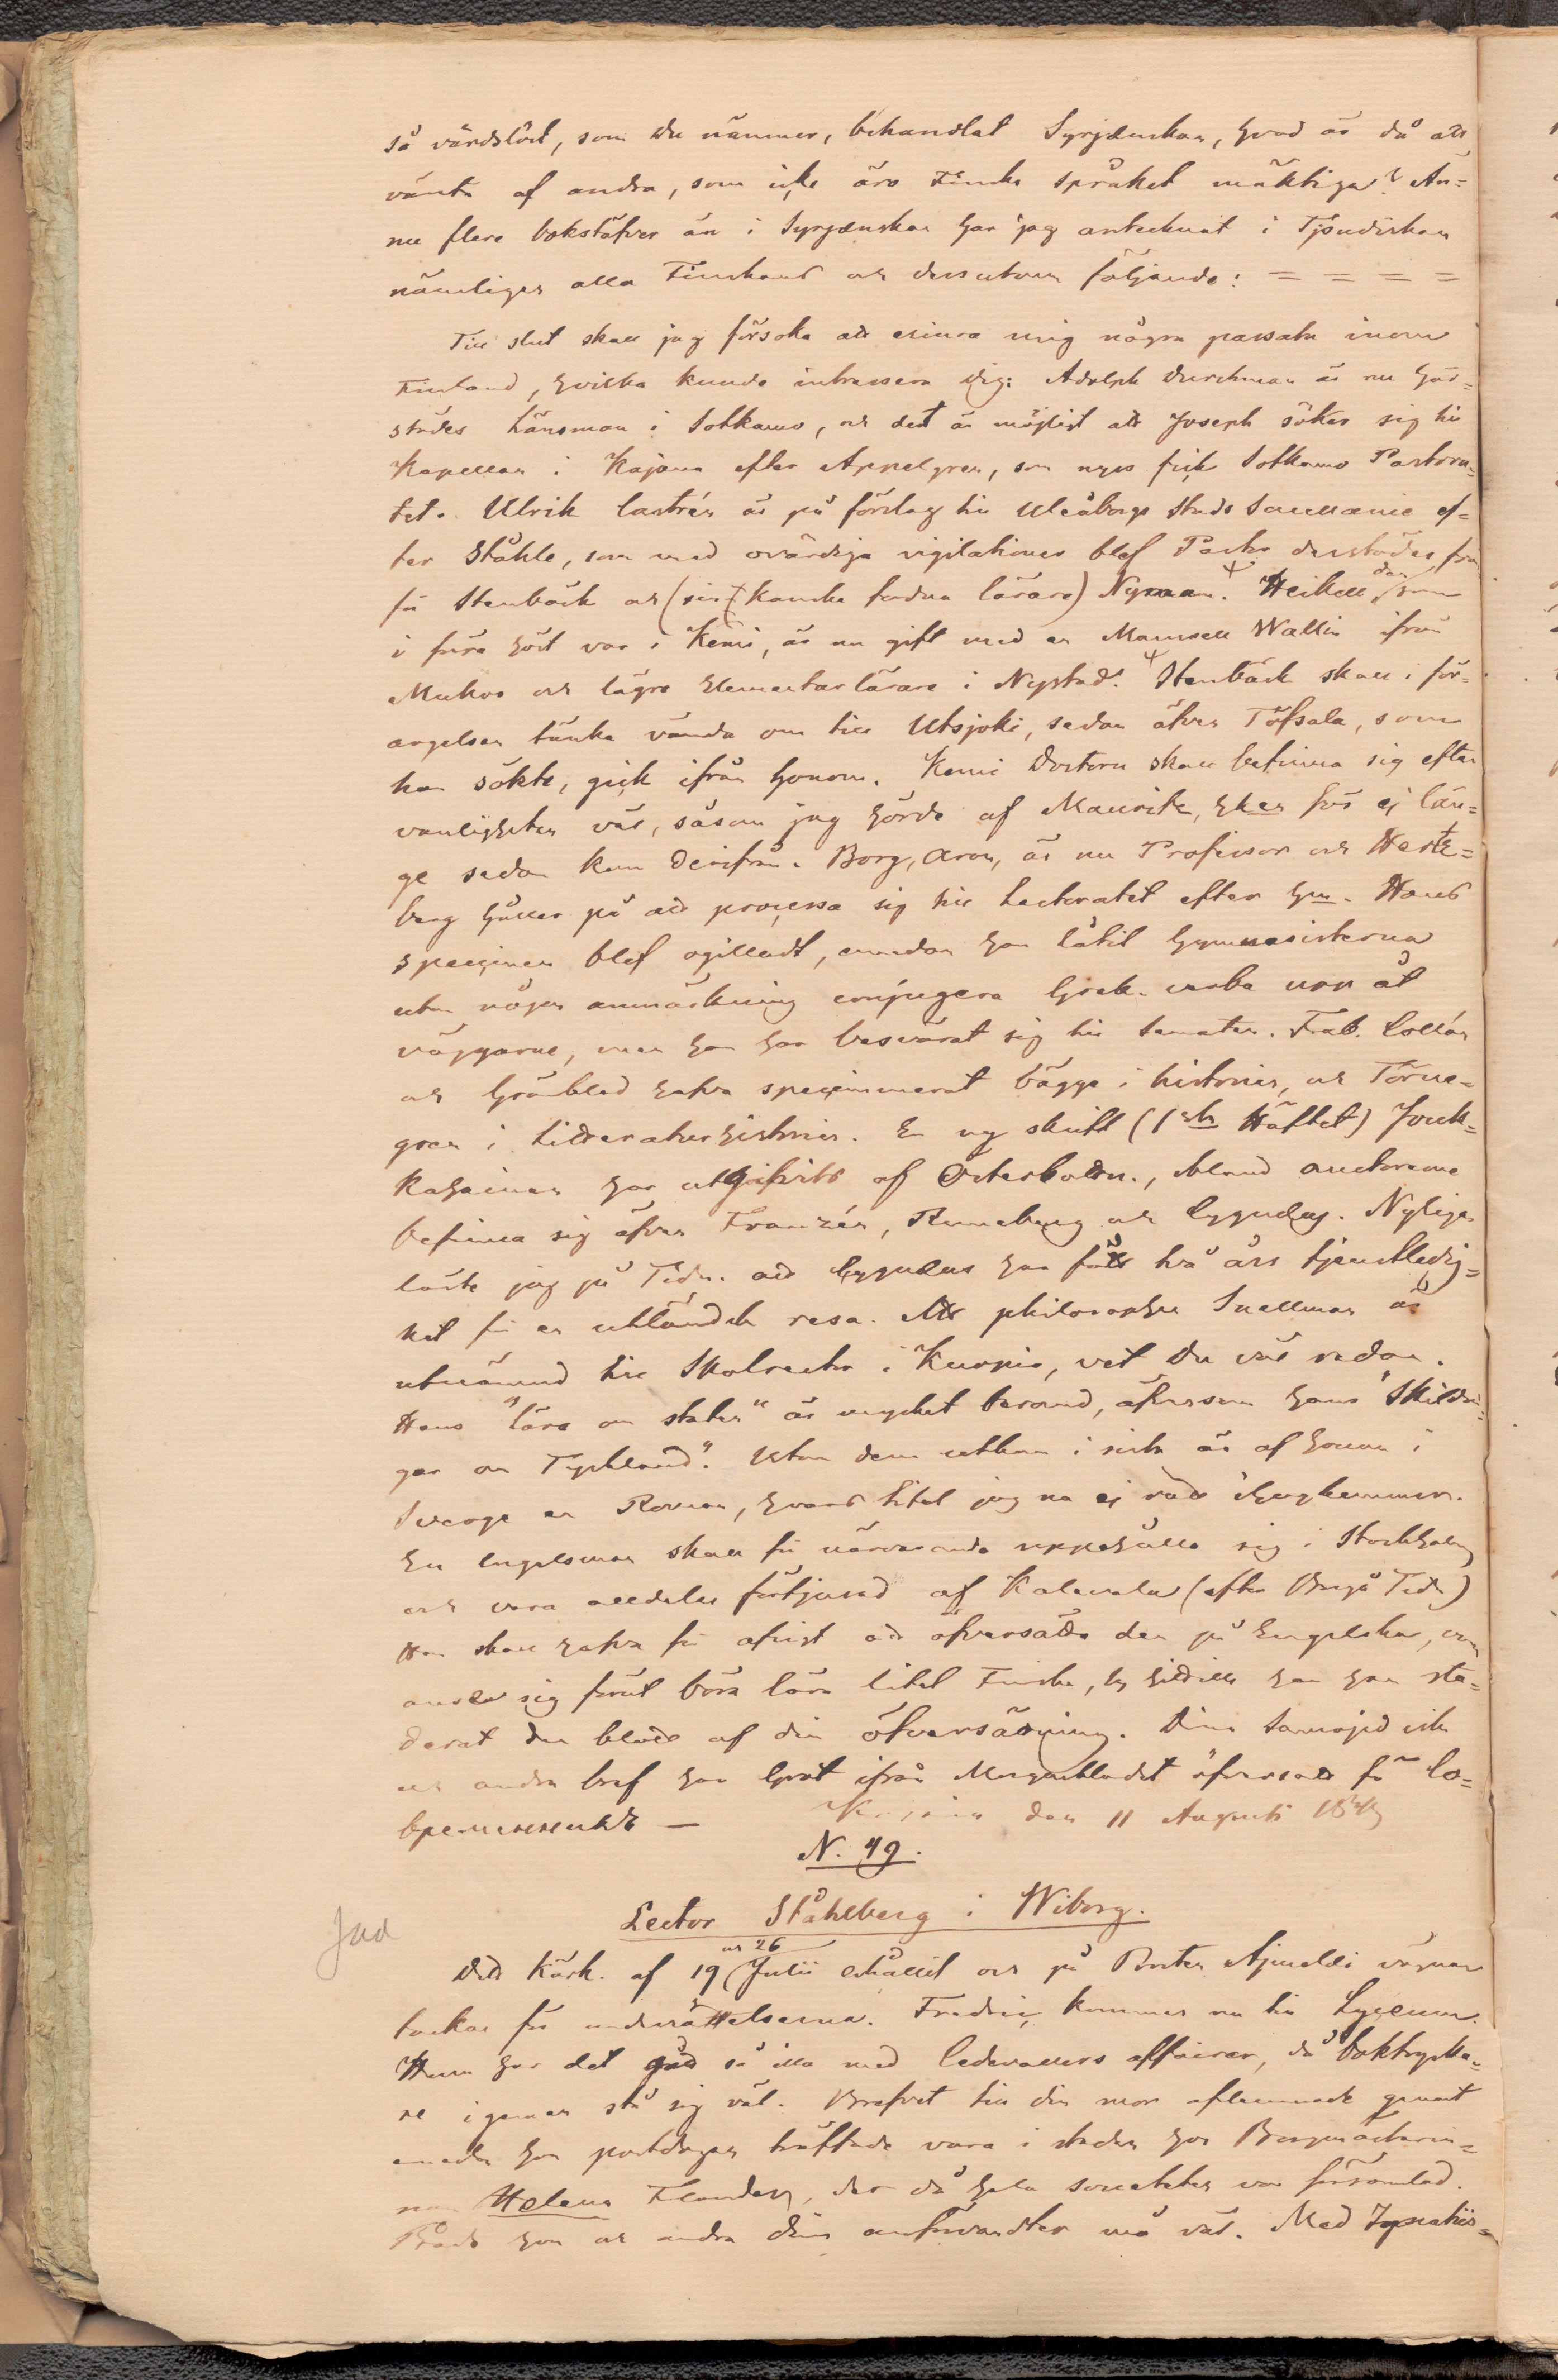 så vårdslöst, som Du nämner, behandlat Syrjænskan, hvad är då att
vänta af andra, som icke äro Finska språket mäktiga? Än=
nu flere bokstäfver än i Syrjænskan har jag antecknat i Tjudiskan
nämligen alla Finskans och dessutom följande: = = = =
Till slut skall jag försöka att erinra mig några passata inom
Finland, hvilka kunde intressera Dig: Adolph Durchman är nu här=
städes Länsman i Sotkamo, och det är möjligt att Joseph söker sig till
Kapellan i Kajana efter Appelgren, som nyss fick Sotkamo Pastora=
tet. Ulrik Castrén är på förslag till Uleåborgs stads Sacellanie ef=
ter Ståhle, som med ovärdiga vigilationer blef Pastor derstädes fram
för Stenbäck och (sin kanske fordna lärare) Nyman. Heikell, den som
i förra höst var i Kemi, är nu gift med en Mamsell Wallin ifrån
Muhos och lägre Elementarlärare i Nystad. Stenbäck skall i för=
argelsen tänka vända om till Utsjoki, sedan äfven Töfsala, som
han sökte, gick ifrån honom. Kemi Doctorn skall befinna sig efter
vanligheten väl, såsom jag hörde af Maurite, hken för ej län=
ge sedan kom derifrån. Borg, Aron, är nu Professor och Hertz=
berg håller på att processa sig till Lectoratet efter hm. Hans
specimen blef ogilladt, emedan han låtit Gymnasisterna
utan någon anmärkning conjugera Grek. verba upp åt
väggarne, men han har besvärat sig till Senaten. Frab. Collán
och Grönblad hafva specimmerat bägge i historien, och Törne=
gren i Litteraturhistorien. En ny skrift (1sta Häftet) Jouk=
kahainen har utgifvits af Österbottn., bland auctorerne
befinna sig äfven Franzén, Runeberg och Cygnæus. Nyligen
läste jag på Tidn. att Cygnæus har fått två års tjenstledig=
het för en utländsk resa. Att philosophen Snellman är
utnämnd till Skolrector i Kuopio, vet Du väl redan.
Hans "lära om staten" är mycket berömd, äfvensom hans "Skildrin=
gar om Tyskland". Utom dem utkom i sista år af honom i
Sverge en Roman, hvars titel jag nu ej rätt ihogkommer.
En Engelsman skall för närvarande uppehålla sig i Stockholm
och vara alldeles förtjusad af Kalevala (efter Borgå Tidn)
Han skall hafva för afsigt att öfversätta den på Engelska, men
anser sig förut böra lära litet Finska, ty hittills har han stu=
derat den blott af din öfversättning. Dina Samojediska
och andra bref har Grot ifrån Morgonbladet öfversatt för Со=
временникъ — Kajana den 11 Augusti 1843
N. 49.
Lector Ståhlberg i Wiborg.
Jud
och 26
Ditt Kärk. af 19 Julii erhållit och på Porten Ajmeldi vägnar
tackar för underrättelserna. Fredric, kommer nu till Lyceum.
Hum har det gått så illa med Cedervallers affairer, då boktrycka=
re i gemen stå sig väl. Brefvet till din mor aflemnade genast
emedan hon postdagen träffade vara i staden hos Borgmästarin=
nan Helena Flander, der då hela societeten var församlad.
Både hon och andra dina anförvandter må väl. Med Ignatius=